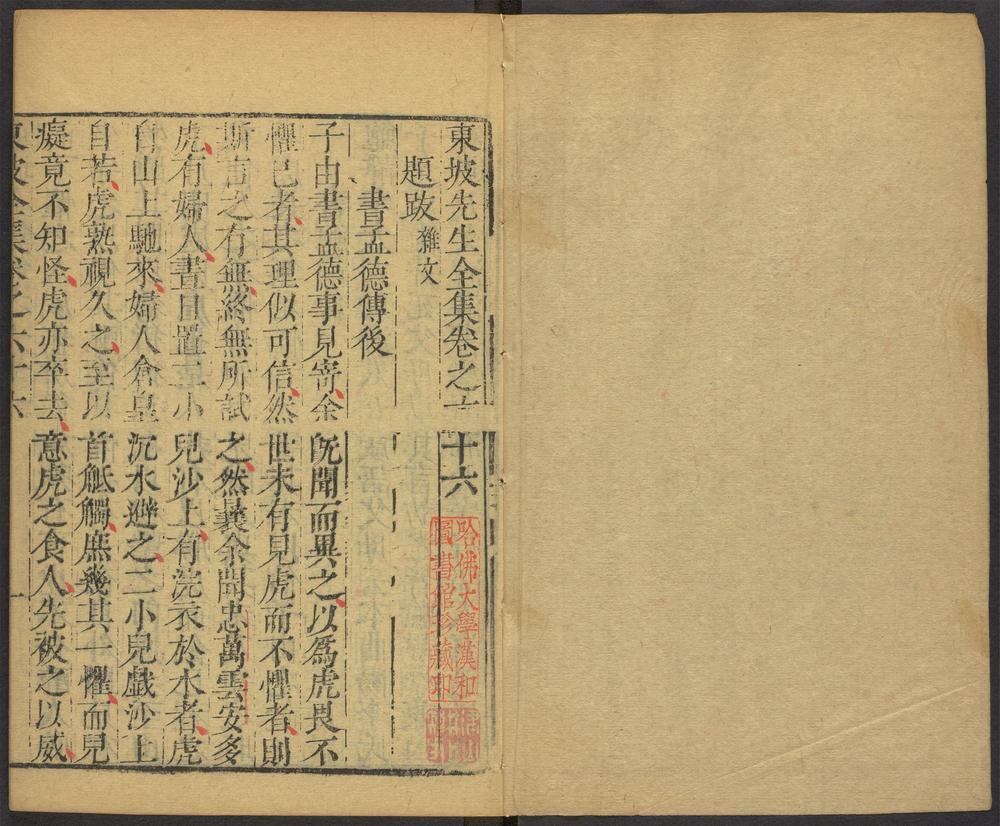 東坡先生全集卷之六十六
題跋 雜文
書孟德傳後
子由書孟德事見寄余旣聞而異之以爲虎畏不
懼己者其理似可信然世未有見虎而不懼者則
斯言之有無終無所試之然曩余聞忠萬雲安多
虎有婦人晝日置二小兒沙上有浣衣於水者虎
自山上馳來婦人倉皇沉水避之二小兒戲沙上
自若虎熟視久之至以首觝觸庶幾其一懼而兒
癡竟不知怪虎亦卒去意虎之食人先被之以威
東坡全集卷之六十六 一
哈佛大學漢和
圖書館珍藏印